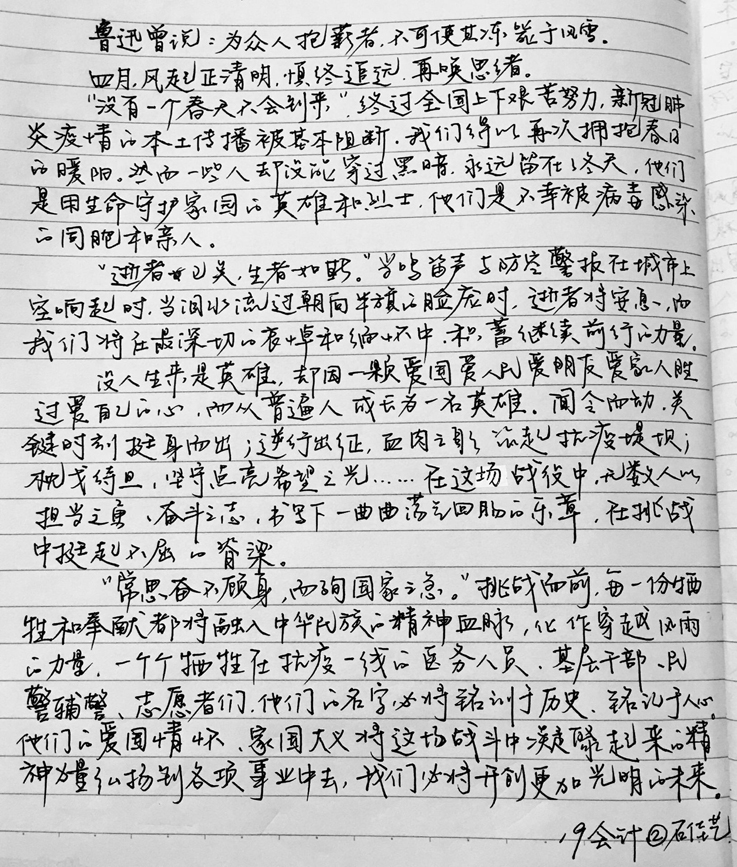 鲁迅曾说：为众人抱薪者，不可使其冻毙于风雪。
四月，风起正清明，慎终追远，再唤思绪。
“没有一个春天不会到来”，经过全国上下艰苦努力，新冠肺
炎疫情的本土传播被基本阻断，我们得以再次拥抱春日
的暖阳。然而一些人却没能穿过黑暗，永远留在了冬天，他们
是用生命守护家园的英雄和烈士，他们是不幸被病毒感染
的同胞和亲人。
“逝者如已矣，生者如斯。”当鸣笛声与防空警报在城市上
空响起时，当泪水流过朝向半旗的脸庞时，逝者将安息，而
我们将在最深切的哀悼和缅怀中，积蓄继续前行的力量。
没人生来是英雄，却因一颗爱国爱人民爱朋友爱家人胜
过爱自己的心，而从普通人成长为一名英雄。闻令而动，关
键时刻挺身而出；逆行出征，血肉之躯筑起抗疫堤坝；
枕戈待旦，坚守点亮希望之光……在这场战役中，无数人以
担当之勇、奋斗之志，书写下一曲曲荡气回肠的乐章，在挑战
中挺起不屈的脊梁。
“常思奋不顾身，而殉国家之急。”挑战面前，每一份牺
牲和奉献都将融入中华民族的精神血脉，化作穿越风雨
的力量，一个个牺牲在抗疫一线的医务人员、基层干部、民
警辅警、志愿者们，他们的名字必将铭刻于历史、铭记于人心。
他们的爱国情怀、家国大义将这场战斗中凝聚起来的精
神力量弘扬到各项事业中去，我们必将开创更加光明的未来。
19会计②石佳艺